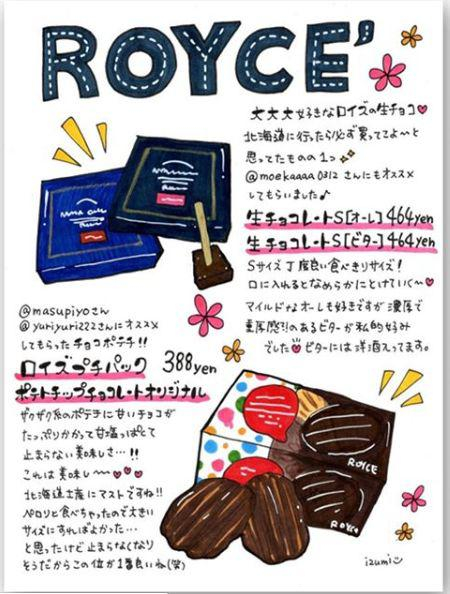 ROYCE'
大大大好きなロイズの生チョコ
北海道に行ったら必ず買ってよ〜と
思ってたものの1つ
@moekaaaa0312さんにもオススメ
してもらいました♪
生チョコレートS[オーレ]464yen
生チョコレートS[ビター]464yen
Sサイズ丁度良い食べきりサイズ!
口に入れるとなめらかにとけていく〜
マイルドなオーレも好きですが濃厚で
重厚感のあるビターが私的好み
でした ビターには洋酒入ってます。
@masupiyoさん
@yuriyuri222さんにオススメ
してもらったチョコポテチ!!
ロイズプチパック 388yen
ポテトチップチョコレートオリジナル
ザクザク系のポテチに甘いチョコが
たっぷりかかって甘塩っぱくて
止まらない美味しさ…!!
これは美味し〜
北海道土産にマストですね!!
ペロリと食べちゃったので大きい
サイズにすればよかった…
と思ったけど止まらなくなり
そうだからこの位が1番良いね(笑)
ROYCE
ROYCE
izumi